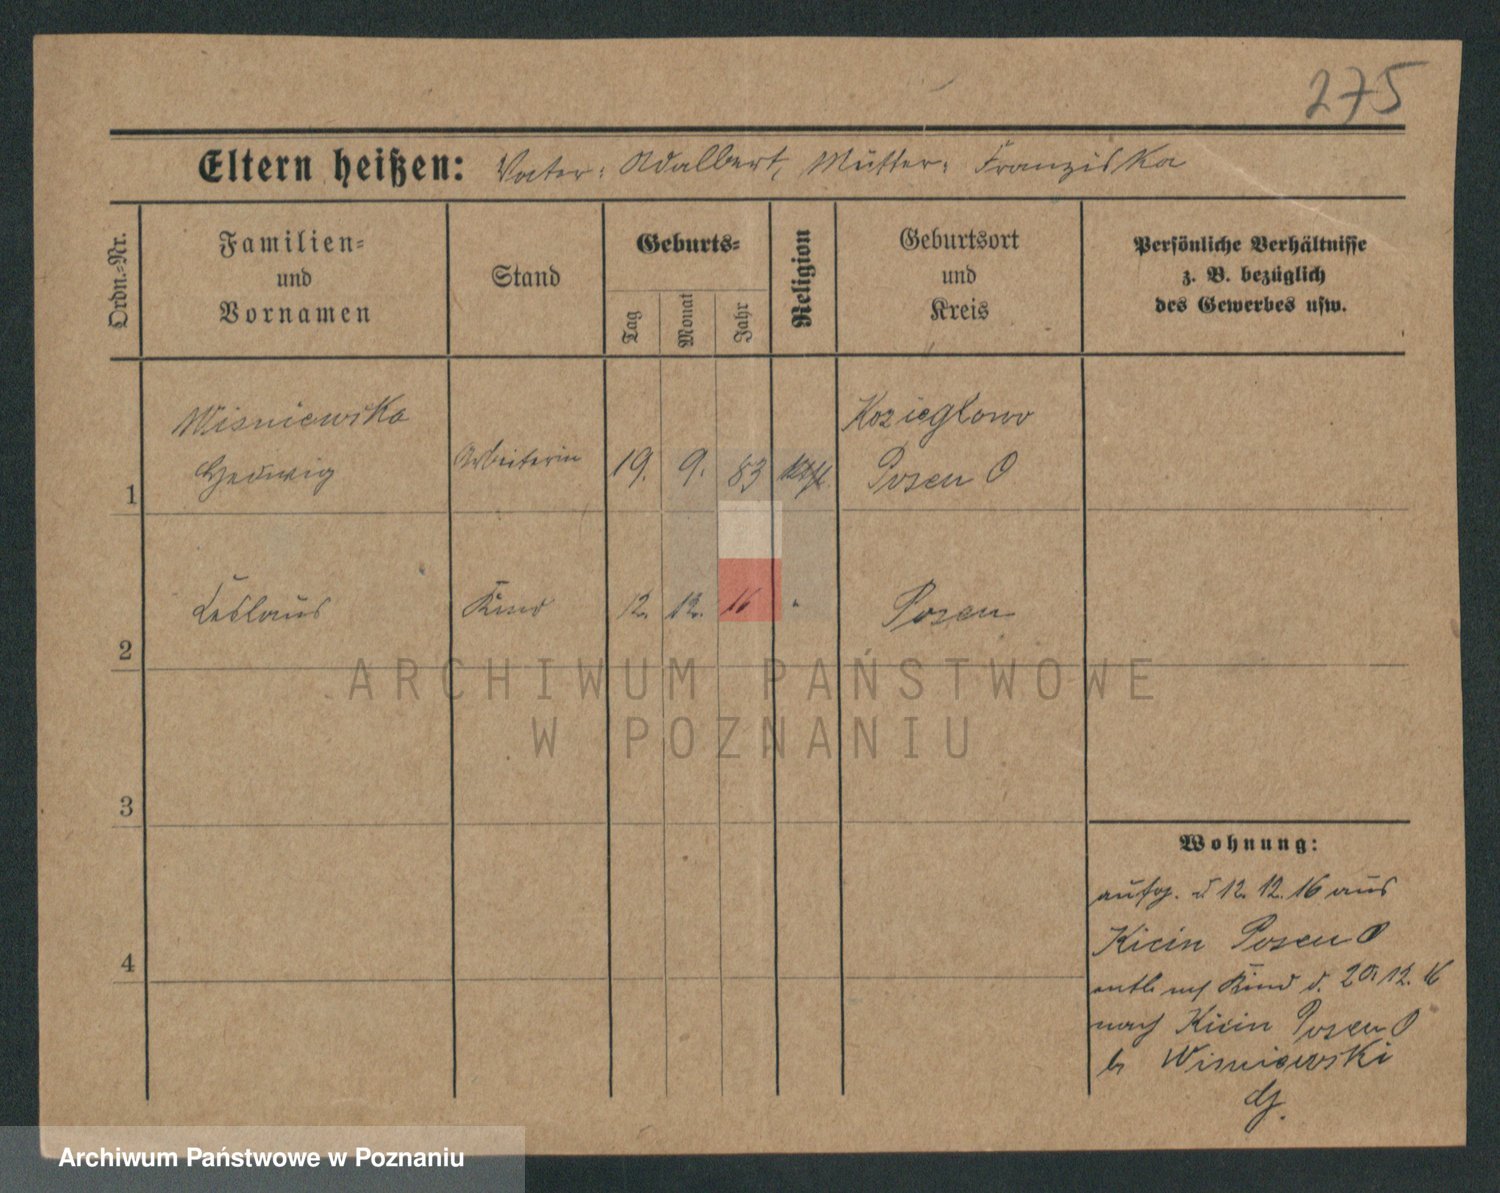 275
Eltern heißen: Vater: Adalbert, Mutter: Franziska
Ordn.-Nr.
Familien-
und
Vornamen
Stand
Geburts-
Tag
Monat
Jahr
Religion
Geburtsort
und
Kreis
Persönliche Verhältnisse
z. B. bezüglich
des Gewerbes usw.
1
Wisniewska
Hedwig
Arbeiterin
19. 9. 83
kath.
Koziegłowo
Posen O
2
Ceslaus
Kind
12. 12. 16
"
Posen
3
4
Wohnung:
aufg. d 12. 12. 16 aus
Kicin Posen O
entl. mit Kind d. 20. 12. 16
nach Kicin Posen O
b. Wisniewski
ARCHIWUM PAŃSTWOWE
W POZNANIU
Archiwum Państwowe w Poznaniu